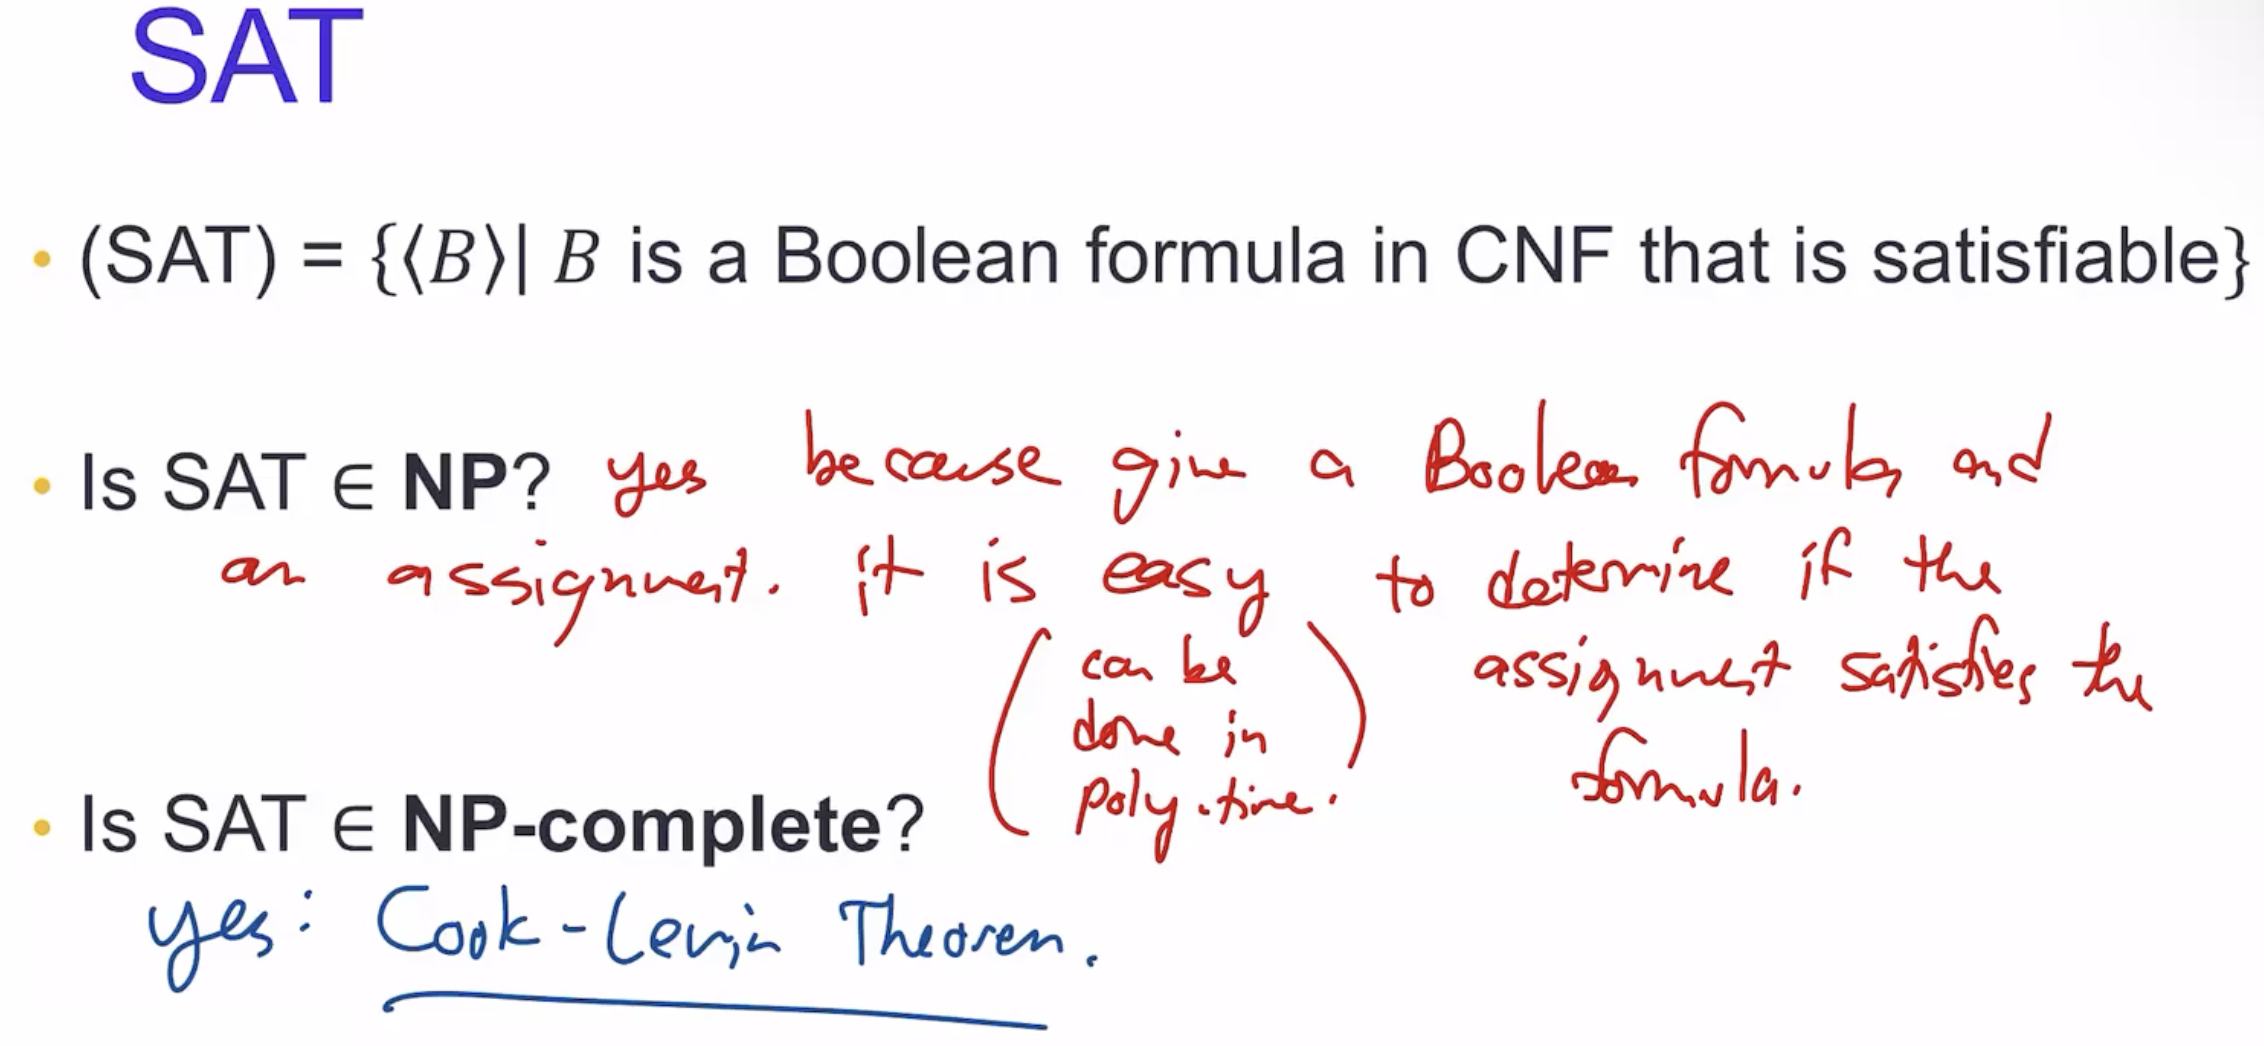 SAT
• (SAT) = {⟨B⟩| B is a Boolean formula in CNF that is satisfiable}
• Is SAT ∈ NP? yes because give a Boolean formula and
an assignment. it is easy to determine if the
(can be done in poly-time.)
assignment satisfies the
formula.
• Is SAT ∈ NP-complete?
yes: Cook-Levin Theorem.